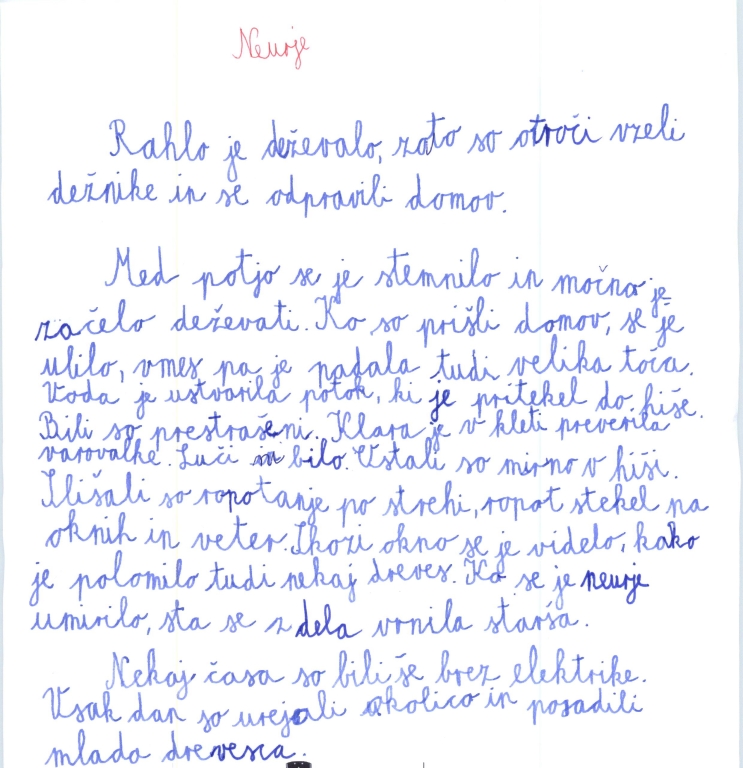 Neurje
Rahlo je deževalo, zato so otroči vzeli
dežnike in se odpravili domov.
Med potjo se je stemnilo in močno je
začelo deževati. Ko so prišli domov, se je
ulilo, vmes pa je padala tudi velika toča.
Voda je ustvarila potok, ki je pritekel do hiše.
Bili so prestrašeni. Klara je v kleti preverila
varovalke. Luči in bilo. Ustali so mirno v hiši.
Slišali so ropotanje po strehi, ropot stekel na
oknih in veter. Skozi okno se je videlo, kako
je polomilo tudi nekaj dreves. Ko se je neurje
umirilo, sta se z dela vrnila starša.
Nekaj časa so bili še brez elektrike.
Vsak dan so urejali okolico in posadili
mlada drevesca.